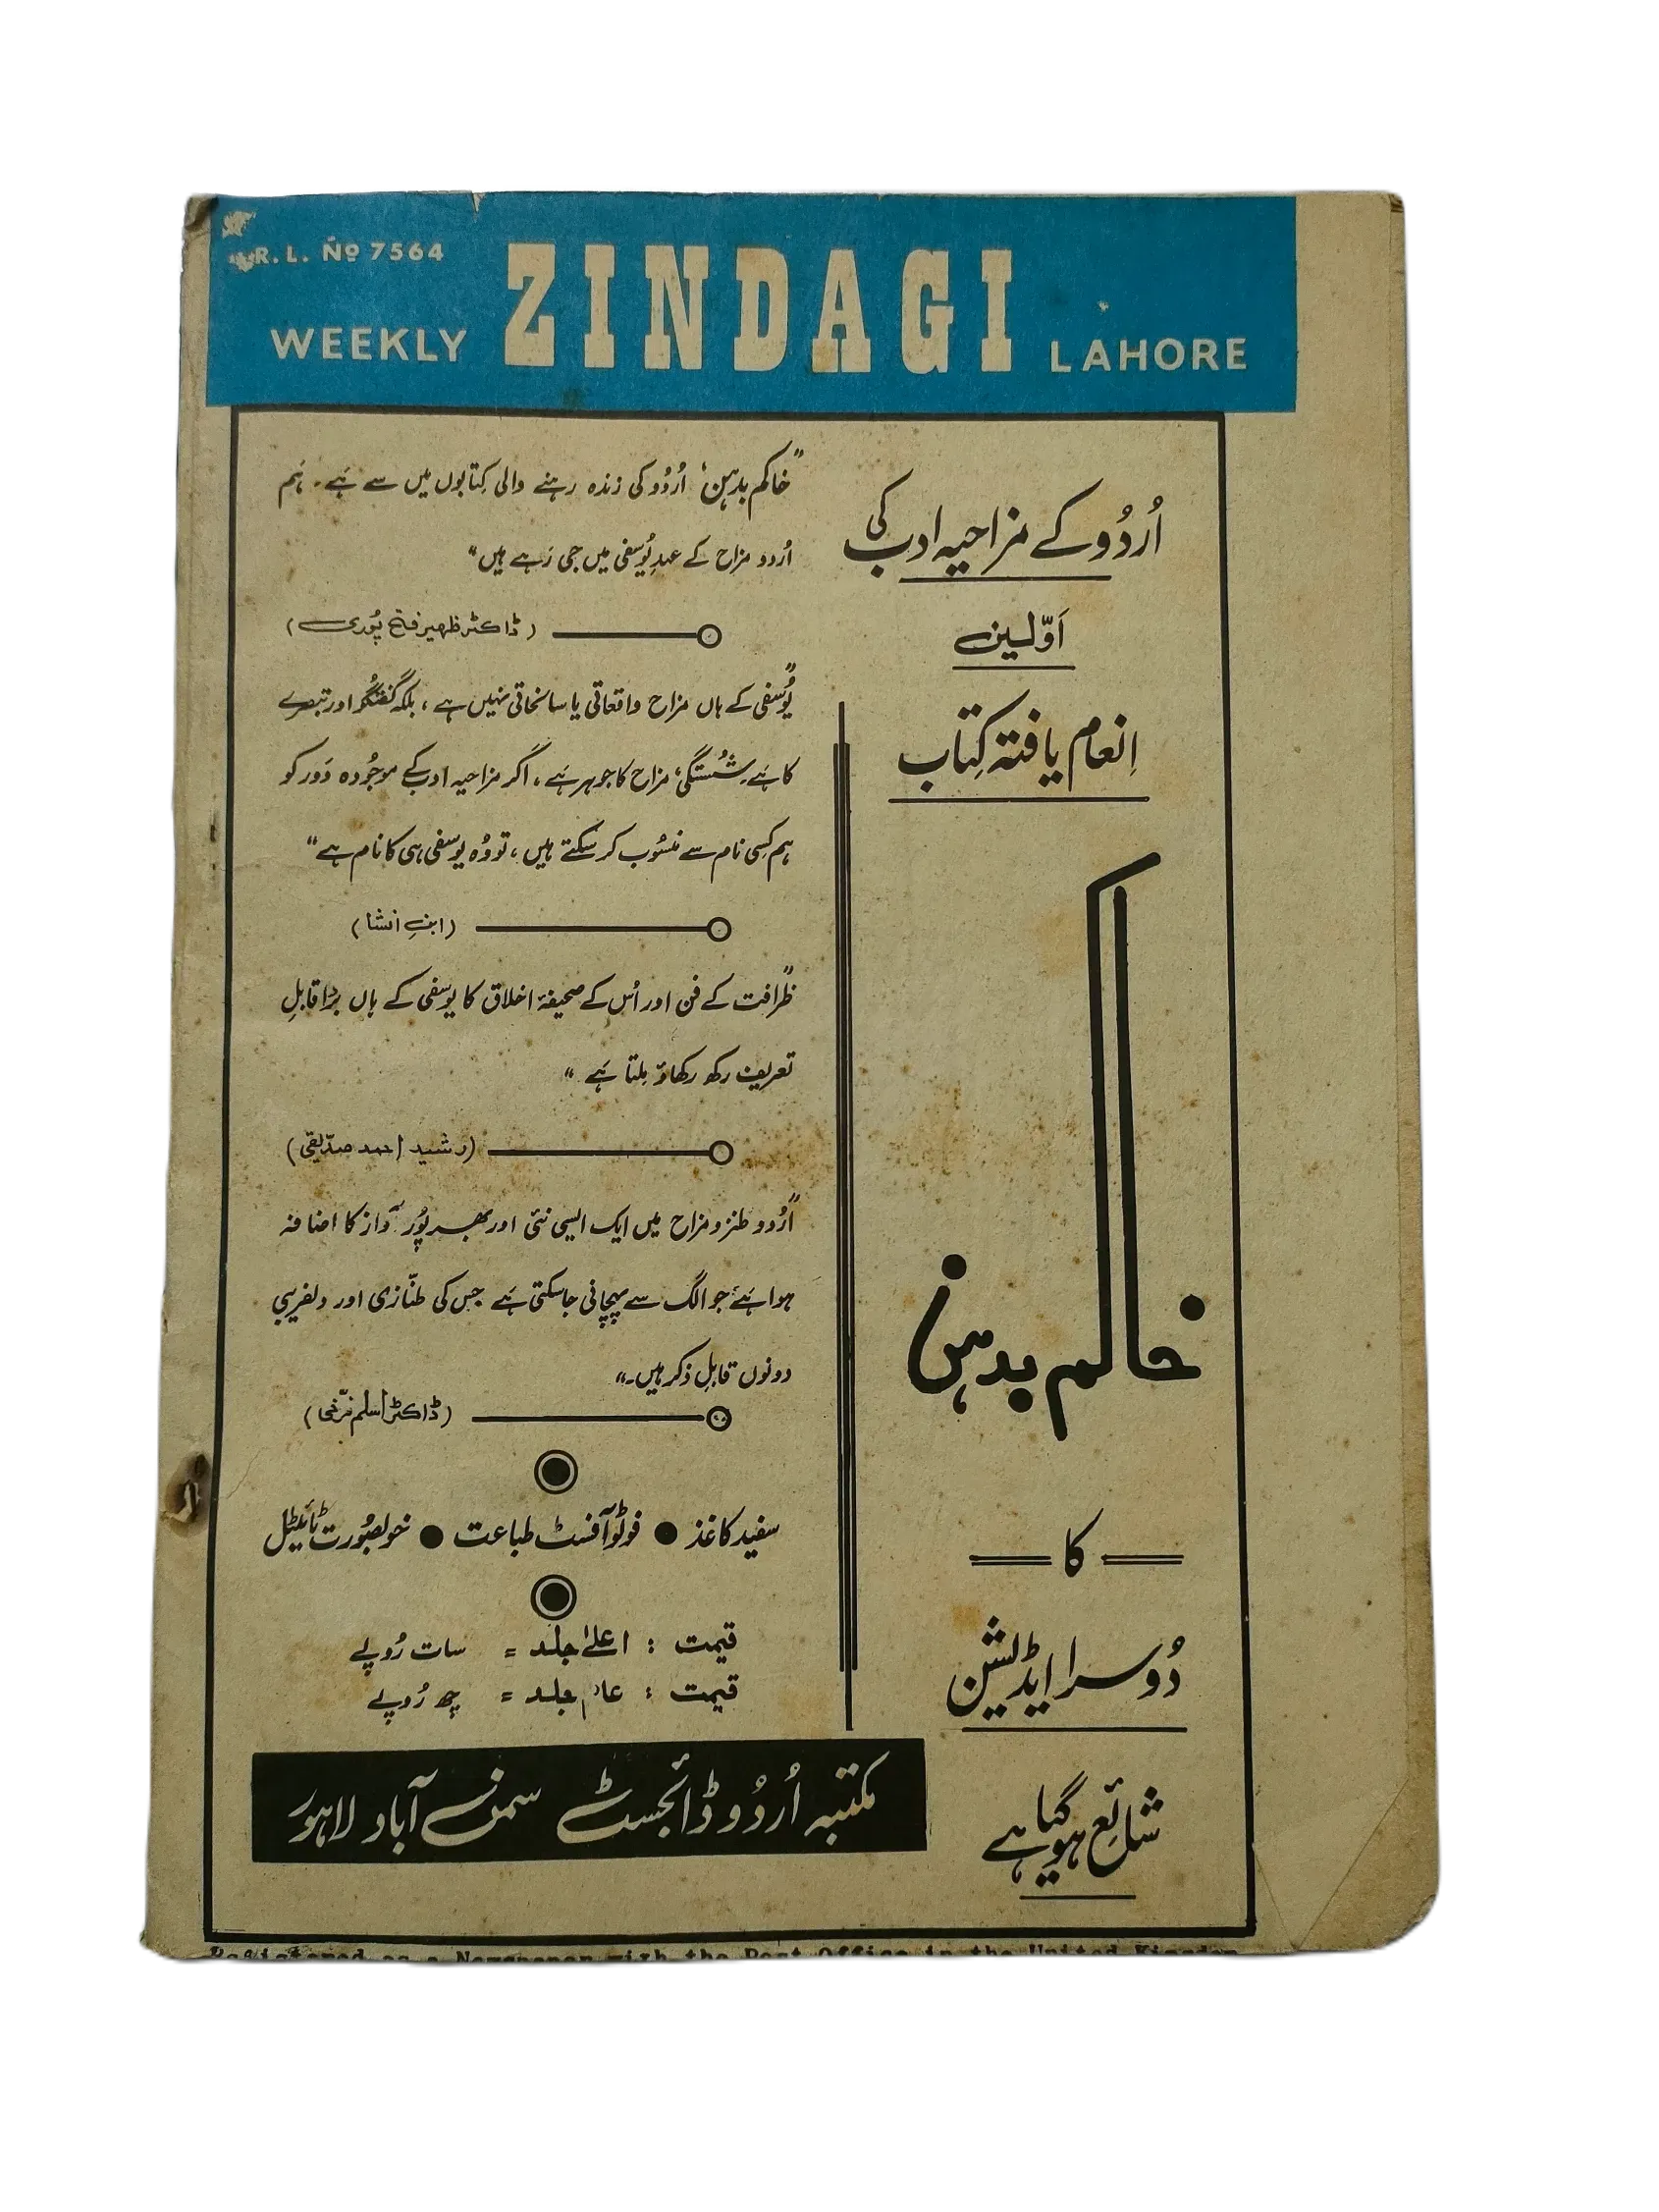 R. L. No 7564
WEEKLY ZINDAGI LAHORE
اُردُو کے مزاحیہ ادب کی
اَوّلین
اِنعام یافتہ کِتاب
خاکم بدہن
کا
دُوسرا ایڈیشن
شائع ہوگیا ہے
"خاکم بدہن' اُردُو کی زندہ رہنے والی کِتابوں میں سے ہَے۔ ہَم
اُردو مزاح کے عہدِ یُوسفی میں جی رَہے ہیں"
(ڈاکٹر ظہیر فتح پُوری)
"یُوسفی کے ہاں مزاح واقعاتی یا سانحاتی نہیں ہے، بلکہ گفتگُو اور تبصرے
کا ہَے۔ شُستگی، مزاح کا جوہر ہَے۔ اگر مزاحیہ ادب کے موجُودہ دَور کو
ہم کِسی نام سے منسُوب کر سکتے ہیں، تو وُہ یوسفی ہی کا نام ہے"
(ابنِ انشا)
"ظرافت کے فن اور اُس کے صحیفۂ اخلاق کا یوسفی کے ہاں بڑا قابلِ
تعریف رکھ رکھاؤ مِلتا ہَے"
(رشید احمد صدّیقی)
"اُردو طنز و مزاح میں ایک ایسی نئی اور بھرپُور آواز کا اضافہ
ہوا ہَے جو الگ سے پہچانی جا سکتی ہَے جس کی طنّازی اور دلفریبی
دونوں قابلِ ذکر ہیں۔"
(ڈاکٹر اسلم فرّخی)
سفید کاغذ ● فوٹو آفسٹ طباعت ● خوبصُورت ٹائیٹل
قیمت : اعلےٰ جلد = سات رُوپے
قیمت : عام جلد = چھ رُوپے
مکتبہ اُردُو ڈائجسٹ سمن آباد لاہور
Registered as a Newspaper with the Post Office in the United Kingdom